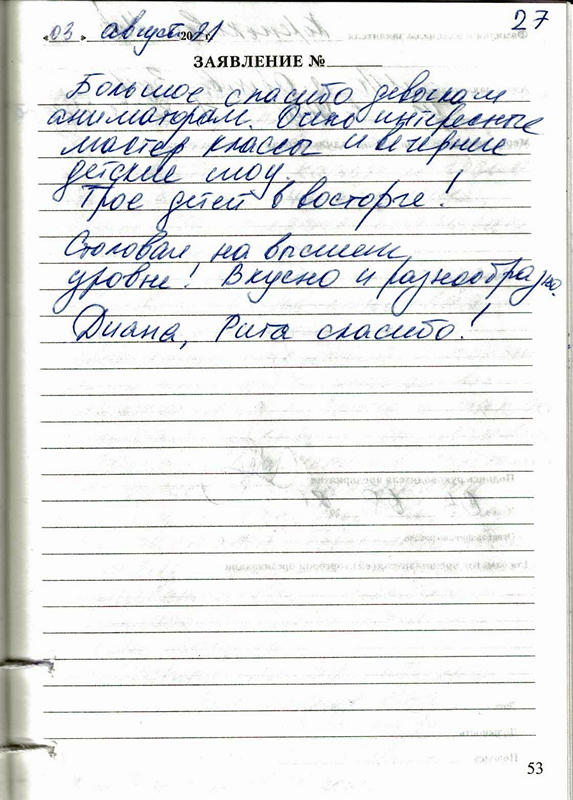 27
«03» август 2021 г.
ЗАЯВЛЕНИЕ №
Большое спасибо девочкам
аниматорам. Очень интересные
мастер классы и вечерние
детские шоу.
Трое детей в восторге!
Столовая на высшем
уровне! Вкусно и разнообразно.
Диана, Рита спасибо!
53